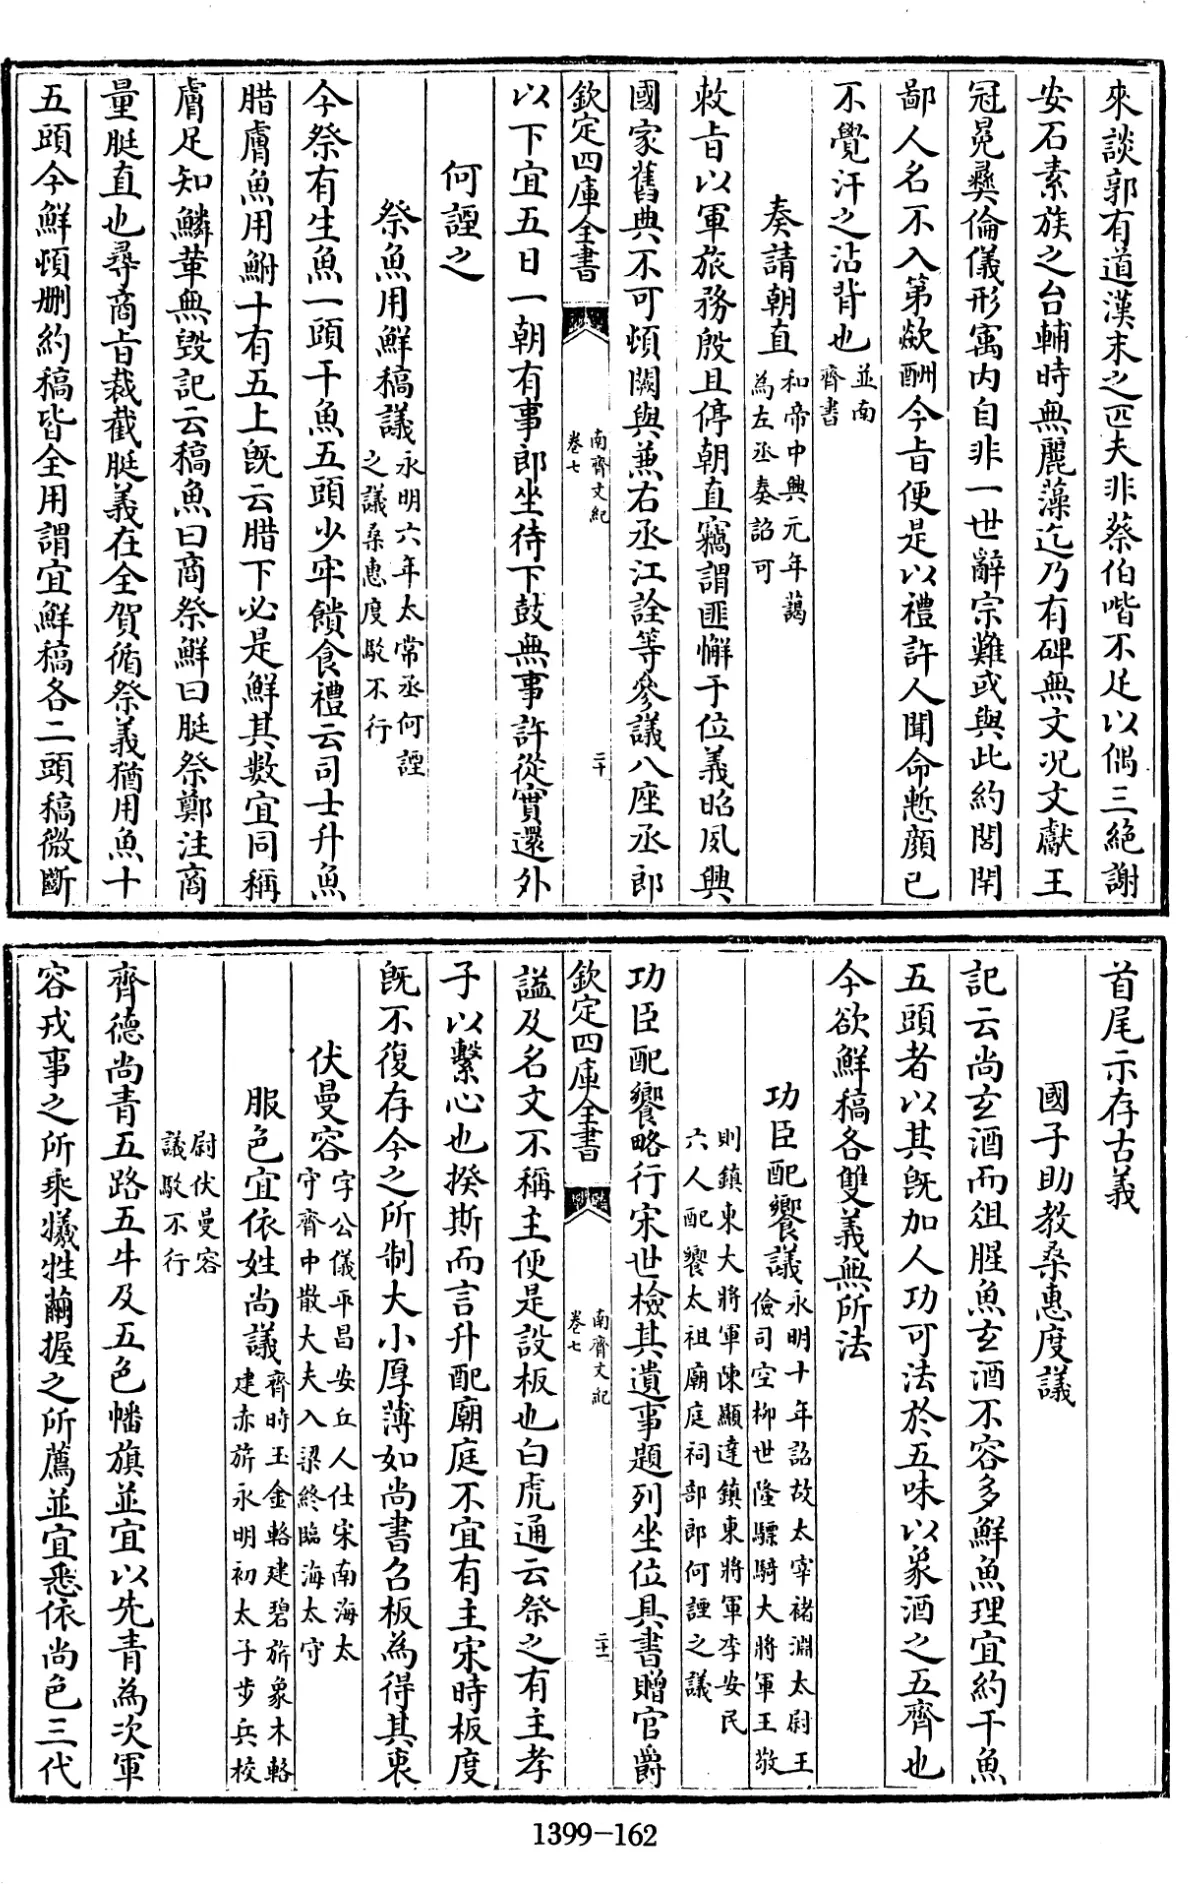 來談郭有道漢末之匹夫非蔡伯喈不足以偶三絶謝
安石素族之台輔時無麗藻迄乃有碑無文況文獻王
冠冕彝倫儀形寓内自非一世辭宗難或與此約閲閈
鄙人名不入第欲酬今㫖便是以禮許人聞命慙顔已
不覺汗之沾背也並南
齊書
奏請朝直和帝中興元年藹
為左丞奏詔可
敕㫖以軍旅務殷且停朝直竊謂匪懈于位義昭夙興
國家舊典不可頓闕與兼右丞江詮等參議八座丞郎
欽定四庫全書
南齊文紀
卷七
二十
以下宜五日一朝有事郎坐待下鼓無事許從實還外
何諲之
祭魚用鮮槁議永明六年太常丞何諲
之議桑惠度駁不行
今祭有生魚一頭干魚五頭少牢饋食禮云司士升魚
腊膚魚用鮒十有五上既云腊下必是鮮其數宜同稱
膚足知鱗革無毀記云槁魚曰商祭鮮曰脡祭鄭注商
量脡直也尋商㫖裁截脡義在全賀循祭義猶用魚十
五頭今鮮頓刪約槁皆全用謂宜鮮槁各二頭槁微斷
首尾示存古義
國子助教桑惠度議
記云尚玄酒而俎腥魚玄酒不容多鮮魚理宜約干魚
五頭者以其既加人功可法於五味以象酒之五齊也
今欲鮮槁各雙義無所法
功臣配饗議永明十年詔故太宰褚淵太尉王
儉司空柳世隆驃騎大將軍王敬
則鎮東大將軍陳顯達鎮東將軍李安民
六人配饗太祖廟庭祠部郎何諲之議
功臣配饗略行宋世檢其遺事題列坐位具書贈官爵
欽定四庫全書
南齊文紀
卷七
二十一
謚及名文不稱主便是設板也白虎通云祭之有主孝
子以繫心也揆斯而言升配廟庭不宜有主宋時板度
既不復存今之所制大小厚薄如尚書召板為得其衷
伏曼容字公儀平昌安丘人仕宋南海太
守齊中散大夫入梁終臨海太守
服色宜依姓尚議齊時玉金輅建碧旂象木輅
建赤旂永明初太子步兵校
尉伏曼容
議駁不行
齊德尚青五路五牛及五色幡旗並宜以先青為次軍
容戎事之所乘犧牲繭握之所薦並宜悉依尚色三代
1399-162